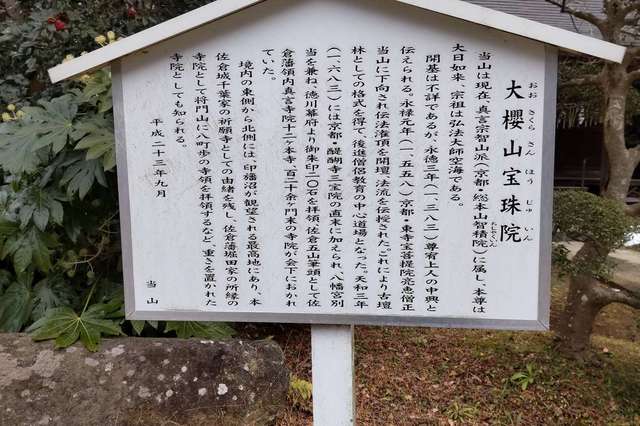 大櫻山宝珠院
おお さくら さん ほう じゅ いん
当山は現在、真言宗智山派(京都・総本山智積院)に属し、本尊は
大日如来、宗祖は弘法大師空海である。
開基は不詳であるが、永徳三年(一、三八三)尊宥上人の中興と
伝えられる。永禄元年(一五五八)京都・東寺宝菩提院亮恵僧正
当山に下向され伝法潅頂を開壇、法流を伝授された。これにより古壇
林としての格式を得て、後進僧侶教育の中心道場となった。天和三年
(一、六八三)には京都・醍醐寺三宝院の直末に加えられ、八幡宮別
当を兼ね、徳川幕府より御朱印二〇石を拝領、佐倉五山筆頭として佐
倉藩領内真言寺院十二ヶ本寺、百二十余ヶ門末の寺院が会下におかれ
ていた。
境内の東側から北側には、印旛沼が観望される最高地にあり、本
佐倉城千葉家の祈願寺としての由緒を残し、佐倉藩堀田家の所縁の
寺院として将門山に八町歩の寺領を拝領するなど、重きを置かれた
寺院としても知られる。
平成二十三年九月
当山